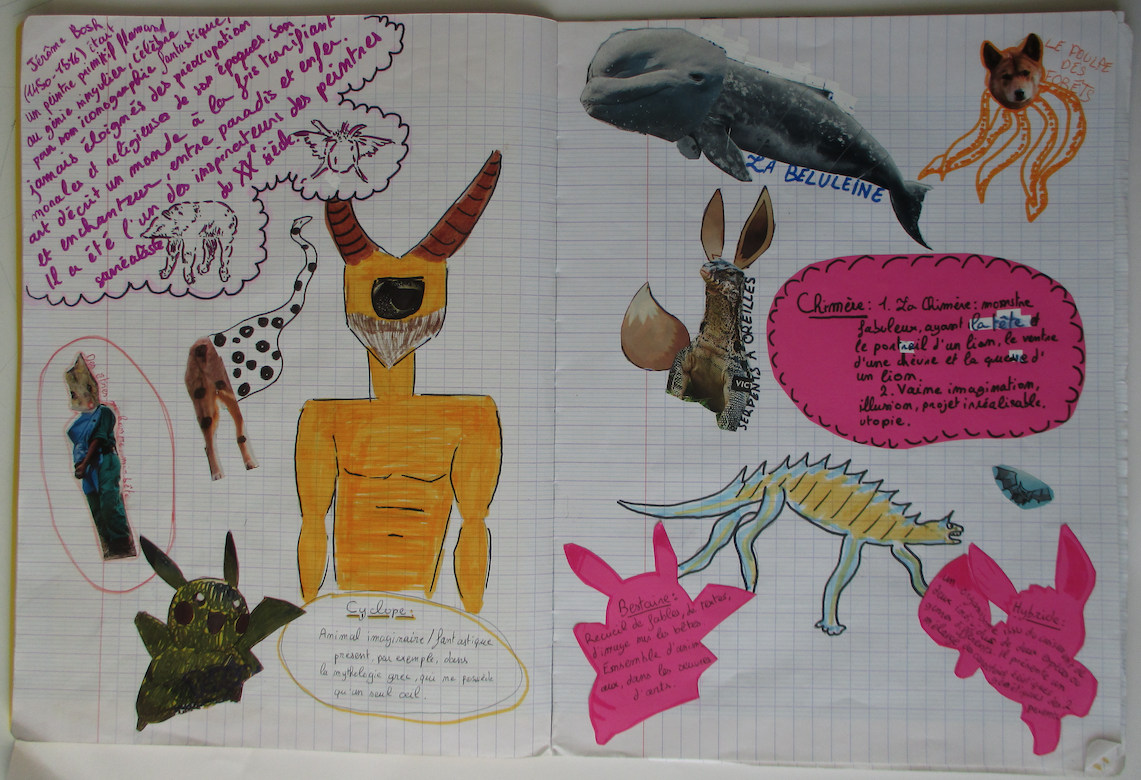 Jérôme Bosh
(1450-1516) était
un peintre primitif flamand
au génie singulier, célèbre
pour son iconographie fantastique,
jamais éloignés des préoccupation
morales et religieuses de son époques. Son
art d'écrit un monde à la fois terrifiant
et enchanteur, entre paradis et enfer.
Il a été l'un des inspirateurs des peintres
surréaliste du XXe siècle
Cyclope:
Animal imaginaire / fantastique
présent, par exemple, dans
la mythologie grec, qui ne possède
qu'un seul oeil.
LA BELULEINE
LE POULPE
DES
FORETS
SERPENTS A OREILLES
VIC
Chimère: 1. La Chimère: monstre
fabuleux, ayant la tête et
le portrail d'un lion, le ventre
d'une chèvre et la queue d'
un lion.
2. Vaine imagination,
illusion, projet irréalisable.
utopie.
Bestiaire:
Recueil de fables, de textes,
d'image sur les bêtes
Ensemble d'anim
aux, dans les oeuvres
d'arts.
Hybride: